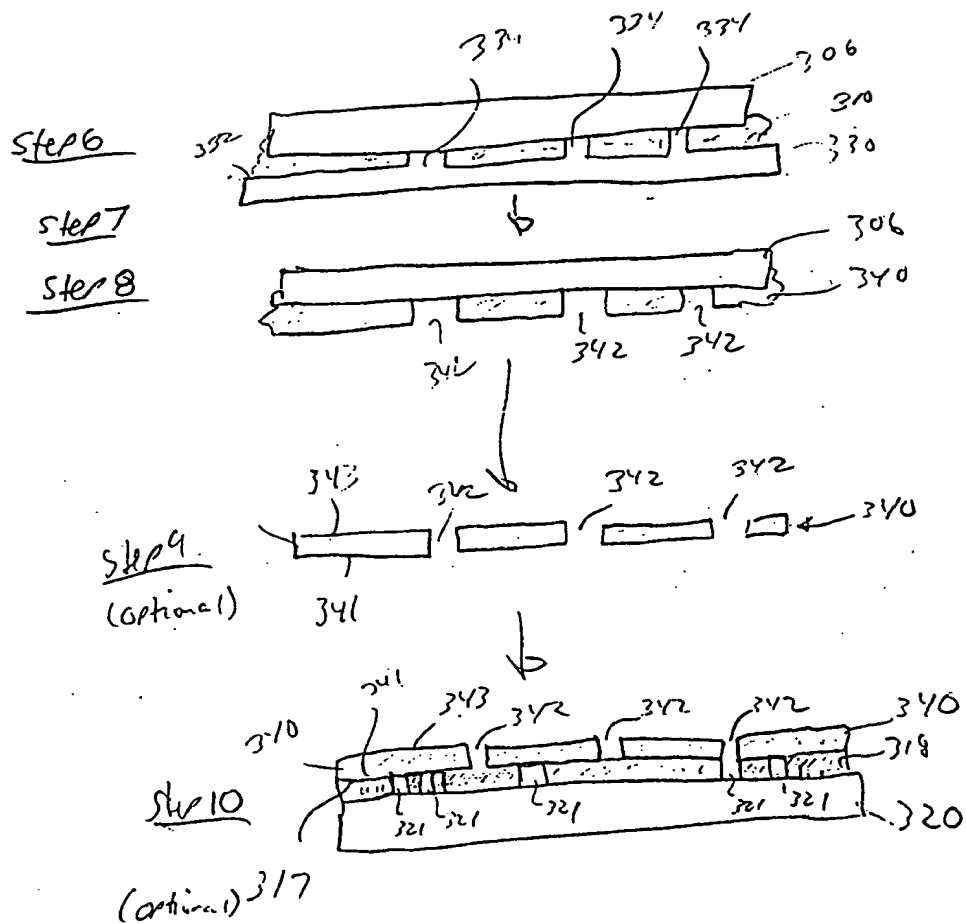 334 334 334
306
Step 6
310
332
330
Step 7
306
Step 8
340
342 342 342
343 342 342 342
340
Step 9
(optional)
341
341 343 342 342 342 340
340
318
Step 10
321 321 321 321 321
320
(optional) 317